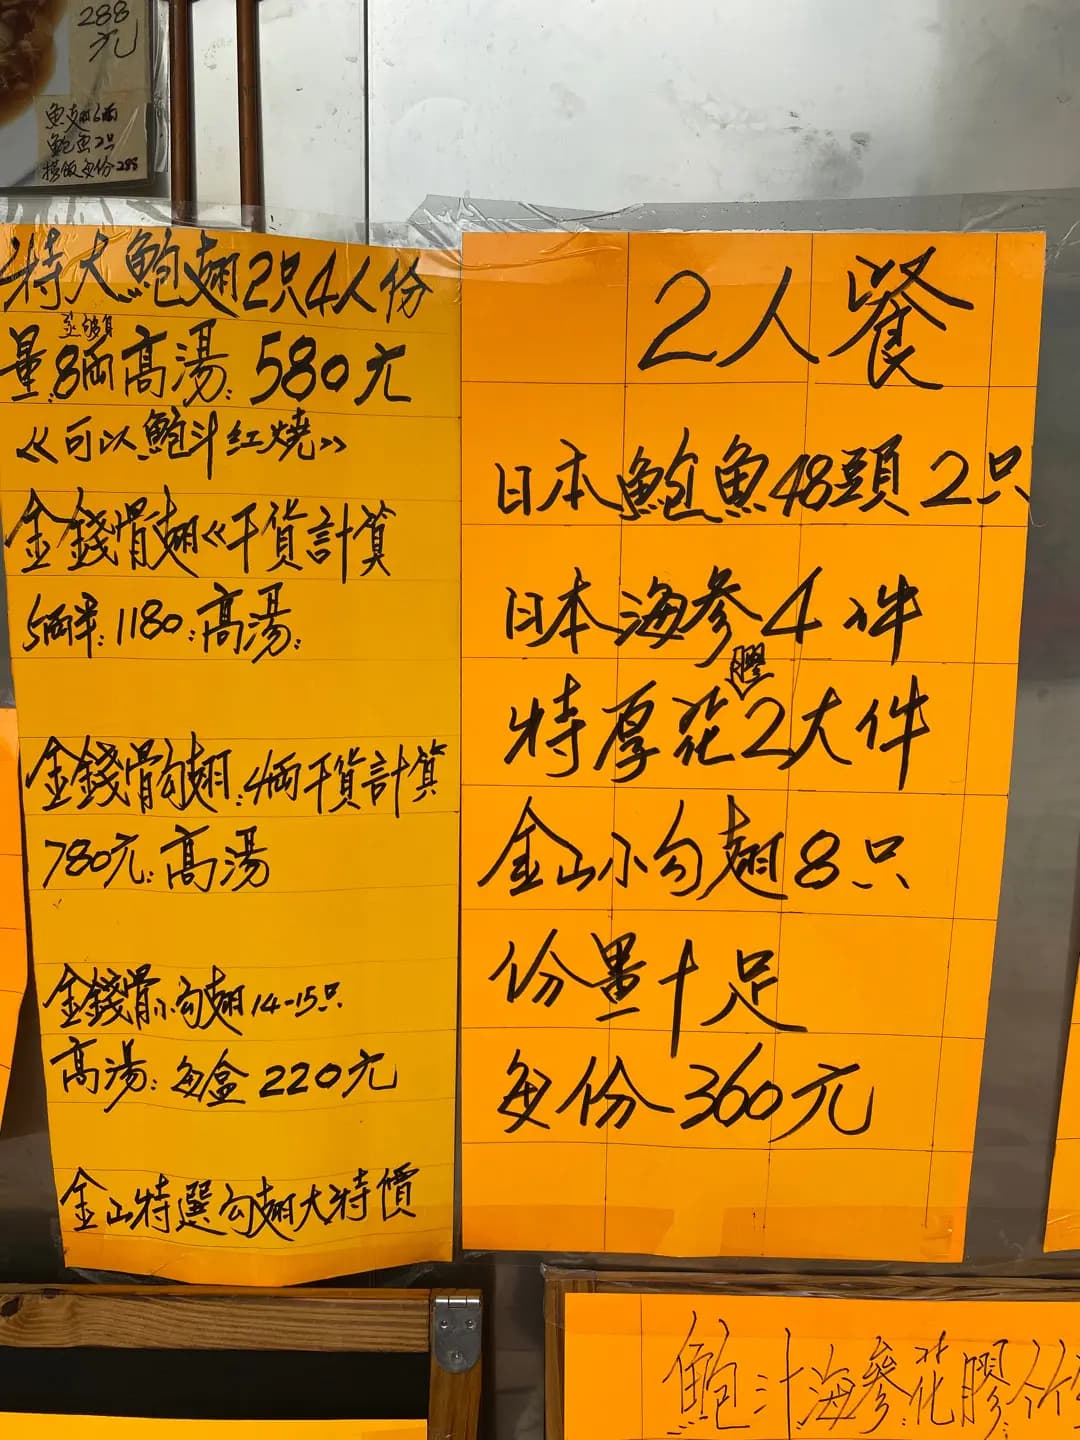 288
元
魚翅6兩
鮑魚2只
撈飯每份288
特大鮑翅2只4人份
量:8兩高湯:580元
《可以鮑汁紅燒》
金錢骨翅《干貨計算
5兩半:1180:高湯:
金錢骨勾翅:4兩干貨計算
780元:高湯
金錢骨小勾翅14-15只
高湯:每盒220元
金山特選勾翅大特價
2人餐
日本鮑魚48頭2只
日本海參4件
特厚花膠2大件
金山小勾翅8只
份量十足
每份360元
鮑汁海參花膠